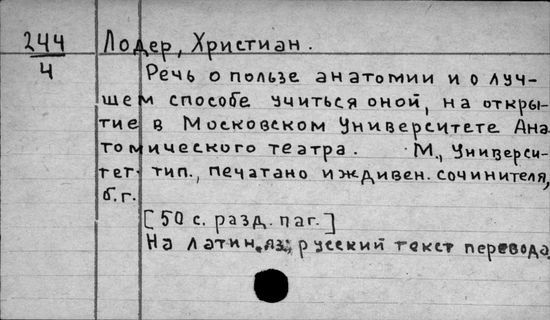 244 Лодер, Христиан.
4 Речь о пользе анатомии и о луч-
шем способе учиться оной, на откры-
тие в Московском Университете Ана
томического театра. М., Универси-
тет. тип., печатано иждивен. сочинителя,
б.г.
[50 с. разд. паг.]
На латин. яз; русский текст перевода.